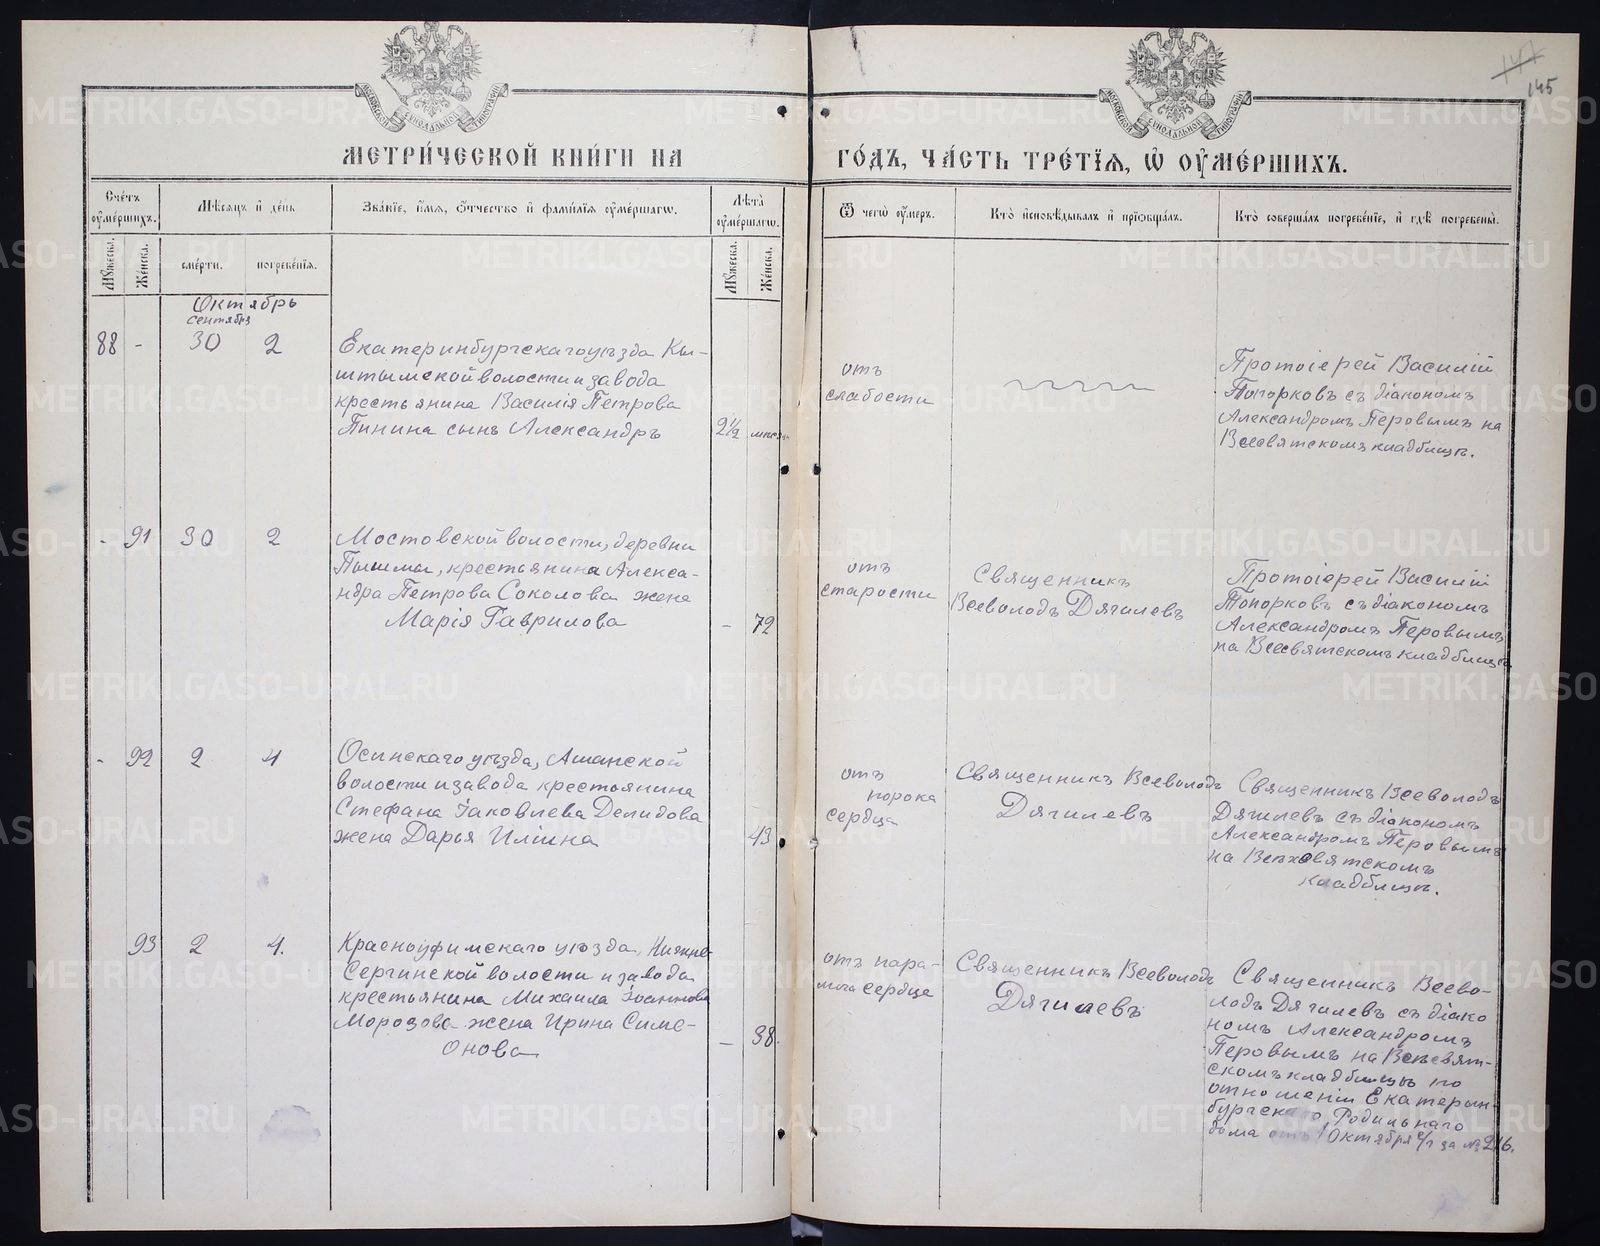 147
145
МОСКОВСКОЙ СѴНОДАЛЬНОЙ ТИПОГРАФІИ
МОСКОВСКОЙ СѴНОДАЛЬНОЙ ТИПОГРАФІИ
МЕТРИ́ЧЕСКОЙ КНИ́ГИ НА
ГО́ДЪ, ЧА́СТЬ ТРЕ́ТЇѦ, Ѡ҆ ОУ҆МЕ́РШИХЪ.
Сче́тъ оу҆ме́ршихъ.
Мѣ́сѧцъ и҆ де́нь
Зва́нїе, и҆́мѧ, ѻ҆́тчество и҆ фами́лїѧ оу҆ме́ршагѡ.
Лѣ́та оу҆ме́ршагѡ.
Ѿ чегѡ̀ оу҆́меръ.
Кто̀ и҆сповѣ́дывалъ и҆ прїѡбща́лъ.
Кто̀ соверша́лъ погребе́нїе, и҆ гдѣ̀ погребены̀.
Мꙋ́жеска.
Же́нска.
сме́рти.
погребе́нїѧ.
Мꙋ́жеска.
Же́нска.
Октябрь
сентября
88 - 30 2
Екатеринбургскаго уѣзда Кы-
штымской волости и завода
крестьянина Василія Петрова
Пинина сынъ Александръ
2½ мѣсяц.
отъ
слабости
Протоіерей Василій
Топорковъ съ діакономъ
Александромъ Перовымъ на
Всесвятскомъ кладбищѣ.
- 91 30 2
Мостовской волости, деревни
Пышмы, крестьянина Алекса-
ндра Петрова Соколова жена
Марія Гаврилова
- 72
отъ
старости
Священникъ
Всеволодъ Дягилевъ
Протоіерей Василій
Топорковъ съ діакономъ
Александромъ Перовымъ
на Всесвятскомъ кладбищѣ
- 92 2 4
Осинскаго уѣзда, Ашапской
волости и завода крестьянина
Стефана Іаковлева Делидова
жена Дарья Иліина
43
отъ
порока
сердца
Священникъ Всеволодъ
Дягилевъ
Священникъ Всеволодъ
Дягилевъ съ діакономъ
Александромъ Перовымъ
на Всехсвятскомъ
кладбищѣ.
93 2 4.
Красноуфимскаго уѣзда, Нижне-
Сергинской волости и завода
крестьянина Михаила Іоаннова
Морозова жена Ирина Симе-
онова
- 38.
отъ пара-
лича сердца
Священникъ Всеволодъ
Дягилевъ
Священникъ Всево-
лодъ Дягилевъ съ діако
номъ Александромъ
Перовымъ на Всесвят-
скомъ кладбищѣ по
отношеніи Екатерин-
бургскаго Родильнаго
дома отъ 1 Октября с/г за №
METRIKI.GASO-URAL.RU